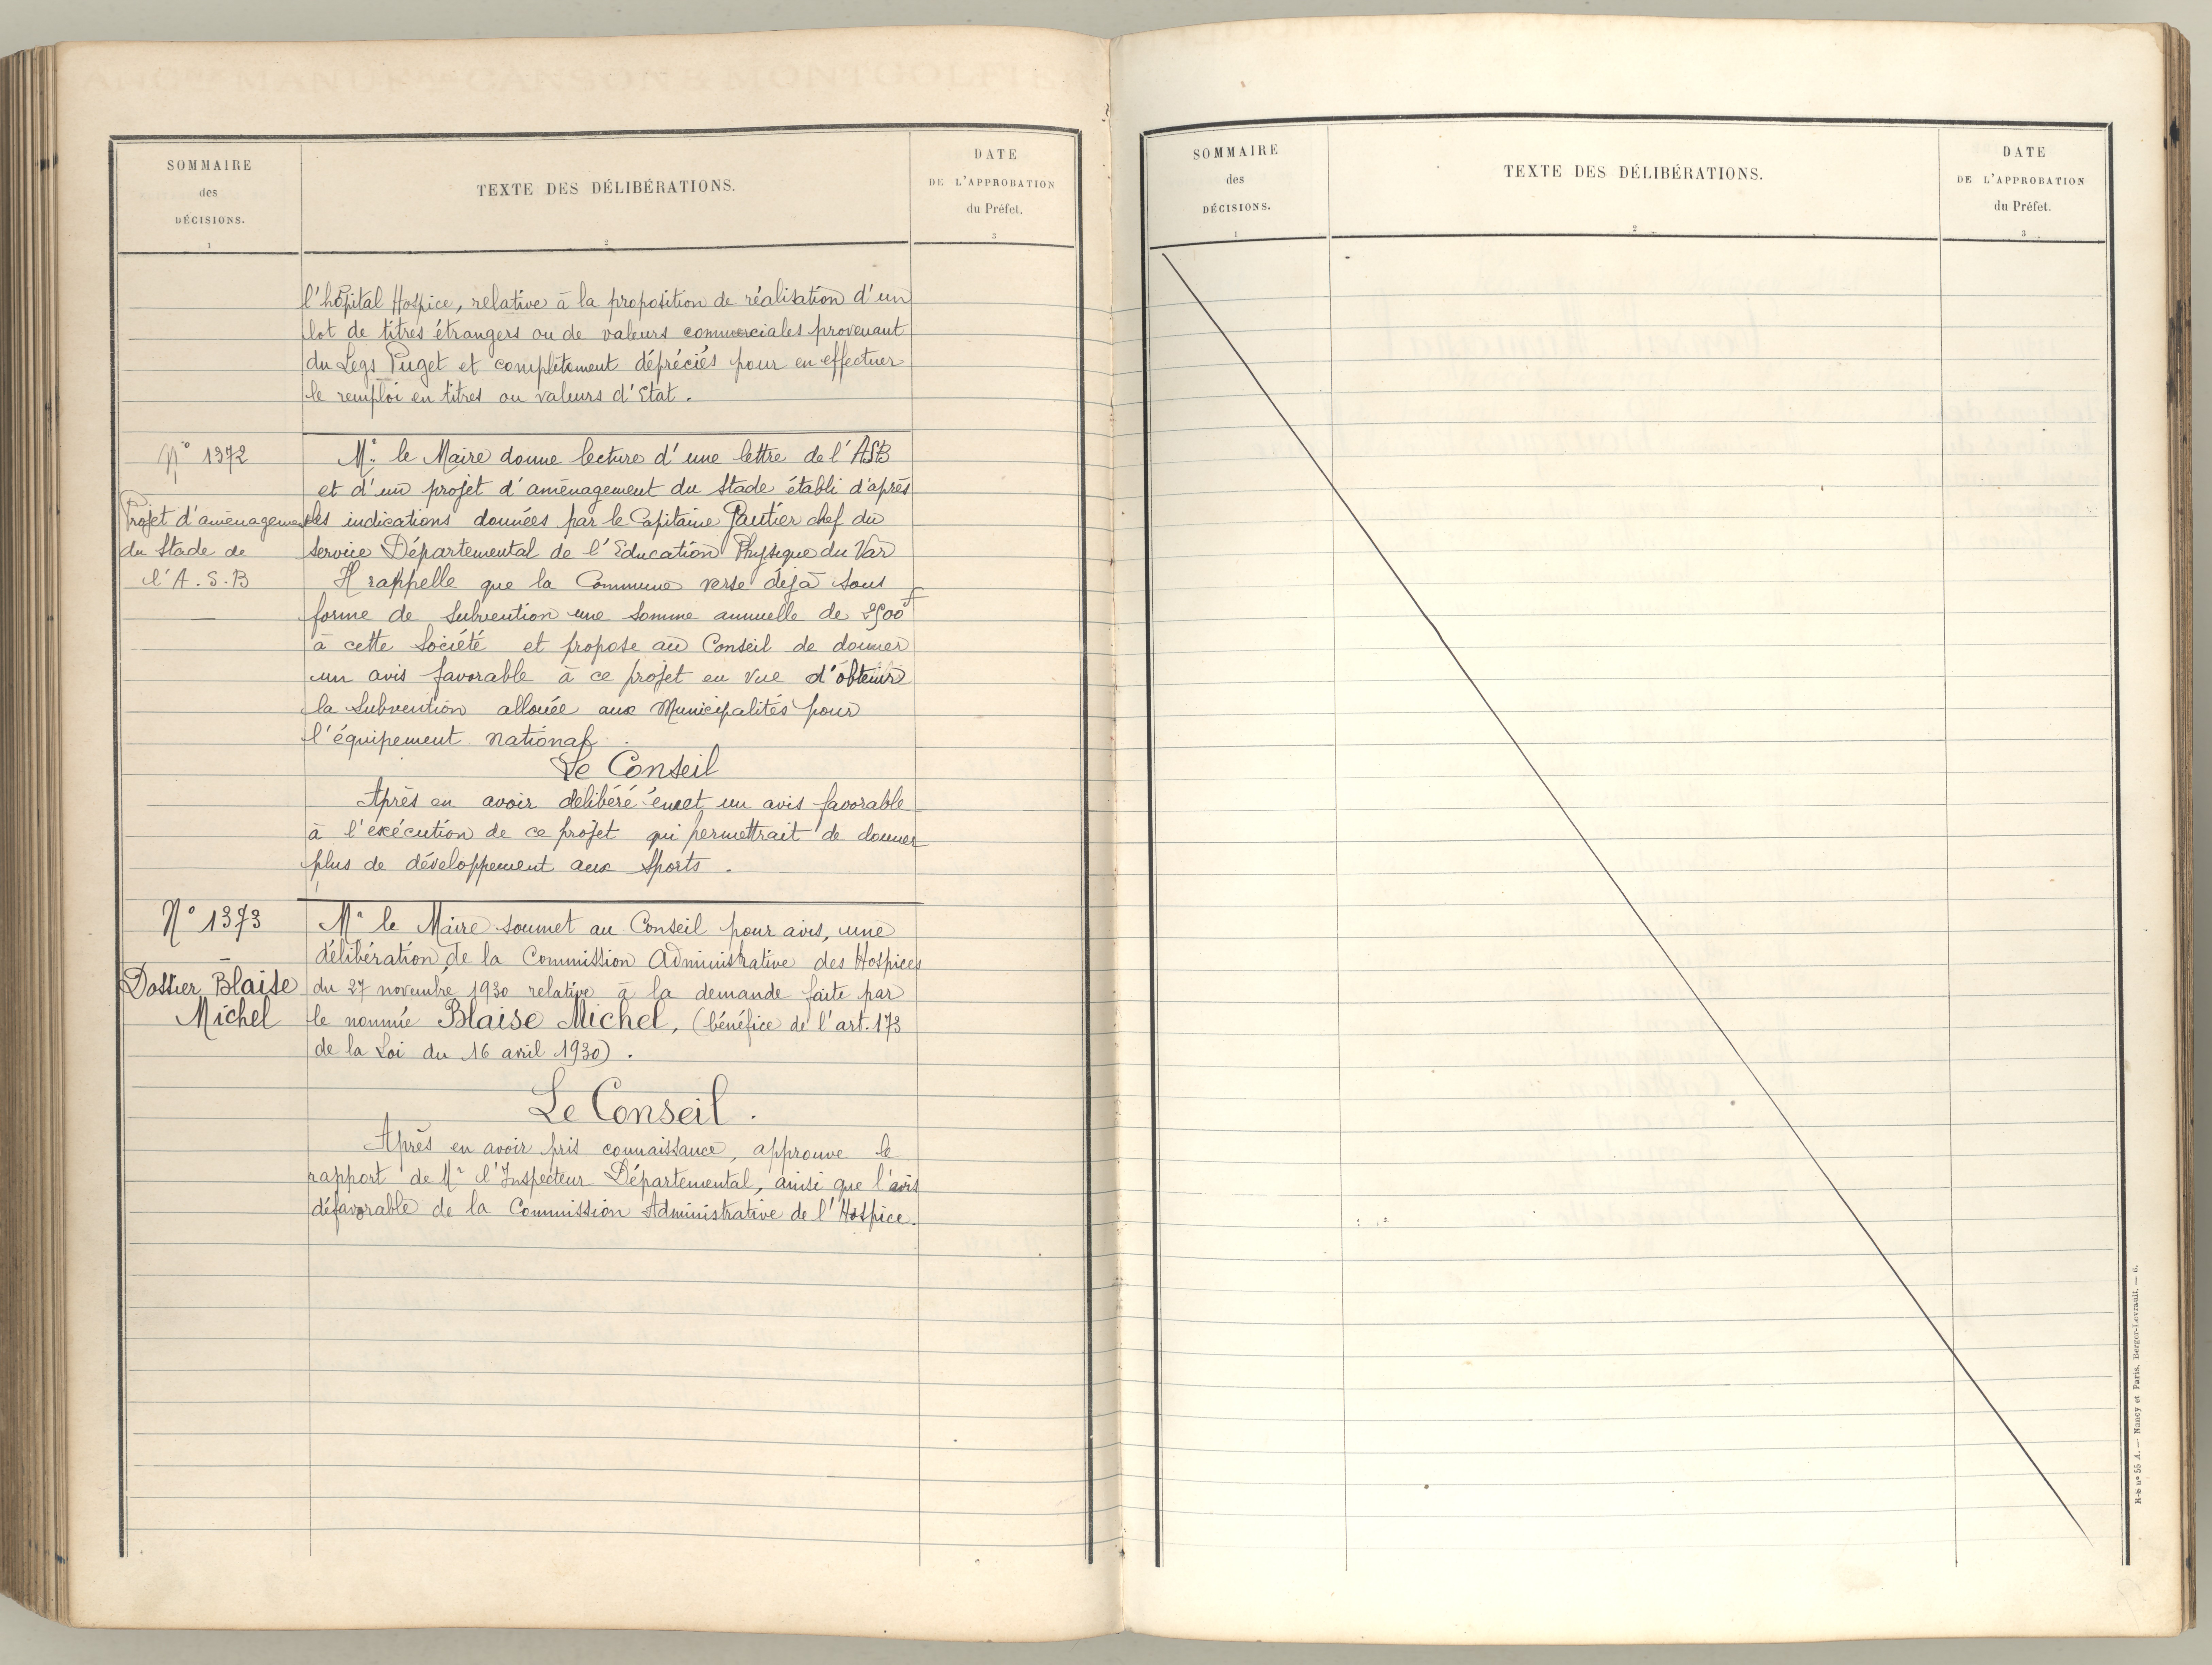 SOMMAIRE
des
DÉCISIONS.
1
TEXTE DES DÉLIBÉRATIONS.
2
DATE
DE L'APPROBATION
du Préfet.
3
l'hôpital Hospice, relative à la proposition de réalisation d'un
lot de titres étrangers ou de valeurs commerciales provenant
du Legs Puget et complètement dépréciés pour en effectuer
le remploi en titres ou valeurs d'Etat.
N° 1372
Projet d'aménagement
du Stade de
l'A.S.B
—
Mr le Maire donne lecture d'une lettre de l'ASB
et d'un projet d'aménagement du Stade établi d'après
les indications données par le Capitaine Gautier chef du
Service Départemental de l'Education Physique du Var
Il rappelle que la Commune verse déjà sous
forme de Subvention une somme annuelle de 2500f
à cette Société et propose au Conseil de donner
un avis favorable à ce projet en vue d'obtenir
la Subvention allouée aux Municipalités pour
l'équipement national.
Le Conseil
Après en avoir délibéré émet un avis favorable
à l'exécution de ce projet qui permettrait de donner
plus de développement aux Sports.
N° 1373
—
Dossier Blaise
Michel
Mr le Maire soumet au Conseil pour avis, une
délibération de la Commission Administrative des Hospices
du 27 novembre 1930 relative à la demande faite par
le nommé Blaise Michel, (bénéfice de l'art. 173
de la Loi du 16 avril 1930).
Le Conseil.
Après en avoir pris connaissance, approuve le
rapport de Mr l'Inspecteur Départemental, ainsi que l'avis
défavorable de la Commission Administrative de l'Hospice.
SOMMAIRE
des
DÉCISIONS.
1
TEXTE DES DÉLIBÉRATIONS.
2
DATE
DE L'APPROBATION
du Préfet.
3
nº 55 A. — Nancy et Paris, Berger-Levrault. — 6.